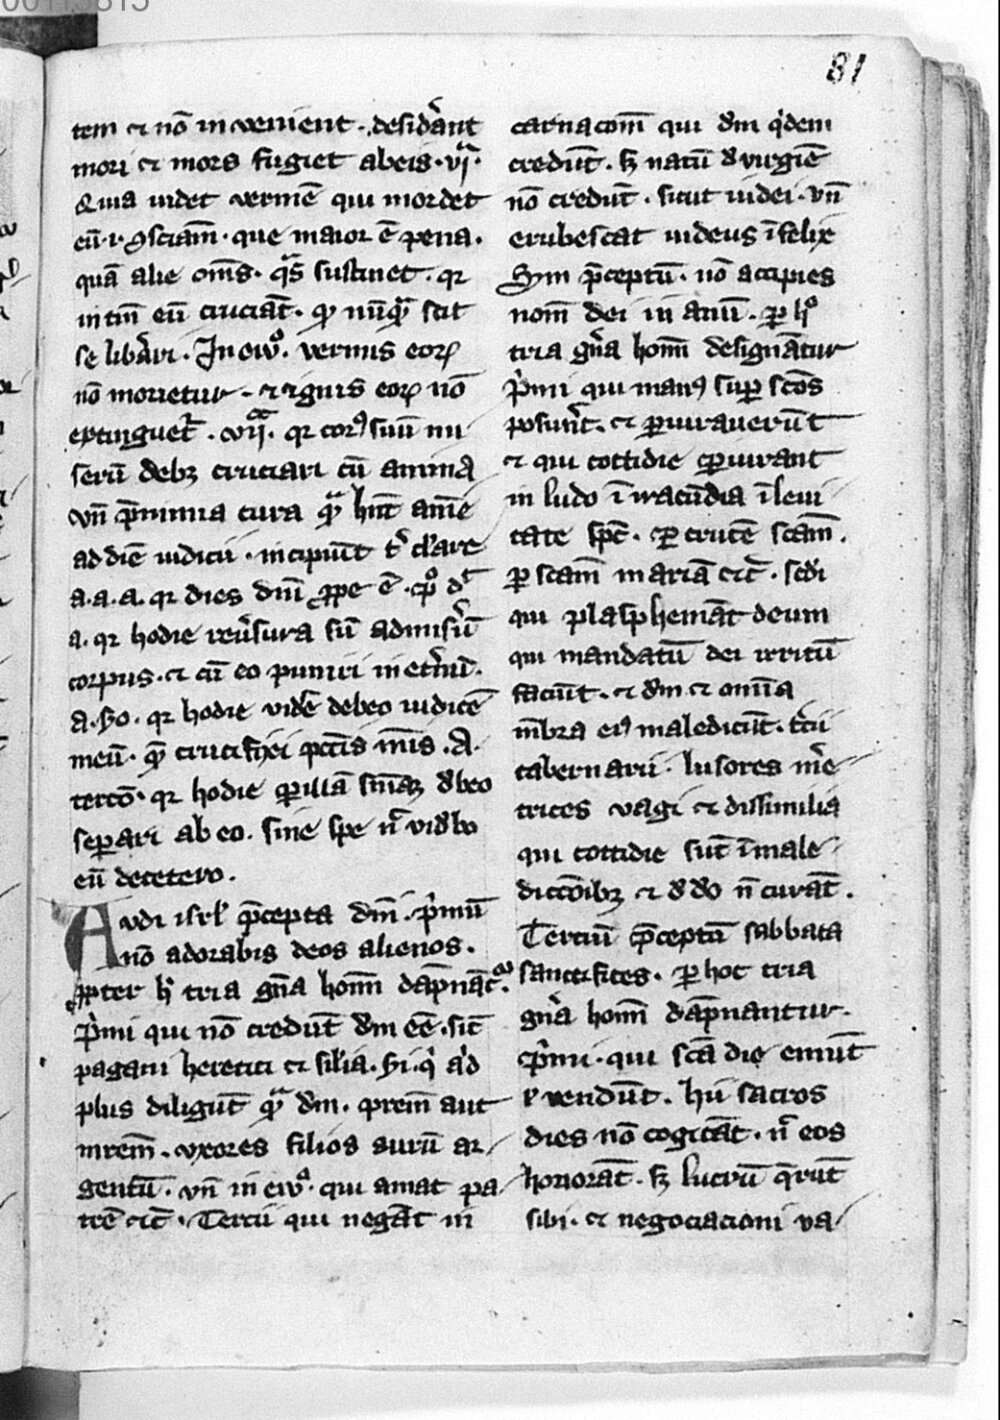 00115815
81
tem et nō in venient. desid̾ant
mori et mors fugiet abeis. vi.
Quia uidet vermē qui mordet
eū .i. ꝯsciam̄. que maior ē pena.
quā alie om̄s. qͣs sustinet. qr
intm̄ eū cruciat̄. qͥ nūqͣ scit
se lib̾ari. In ewͦ. vermis eoꝝ
nō morietur. et ignis eoꝝ nō
extinguet᷑. vii. qr corꝰ suū mi
serū debꝫ cruciari cū anima
vn̄ p̄nimia cura qͣ hn̄t aīe
ad diē iudicii. incipiūt t̾ clare
a. a. a. qr dies dn̄i ꝓpe ē.
a. qr hodie reu̾sura sū ad misēꝝ
corpus. et cū eo puniri inet̾nū.
a. qr hodie vidē debeo iudicē
meū. quē crucifixi pctīs m̄is. A.
tercō. qr hodie ꝑ illā sn̄iaꝫ dbeo
separi ab eo. sine spe nͨ vidbo
eū decetero.
Audi isrl̓ p̄cepta dn̄i. p̓mū
nō adorabis deos alienos.
ꝓpter hͦ tria gn̄a hom̄ dāpnāt᷑.
p̓mi qui nō credūt dm̄ eē. sic̄
pagani heretici et silīa. Si. qͥ ad
plus diligūt qͣ dm̄. prem̄ aut
mrem̄. vxores filios aurū ar
gentū. vn̄ in ewͦ. qui amat pa
trē etc̄. Tercii qui negāt in
carnacom̄ qui dm̄ qͥdem
credūt. sꝫ natū d̓ virgiē
nō credūt. sicut iudei. vn̄
erubescat iudeus īfelix
Sym p̄ceptū. nō accipies
nom̄ dei in anū. ꝑ hͦ
tria gn̄a hom̄ designātur
p̓mi qui manꝰ suꝑ scōs
posuīt. et ꝑiurauerūt
et qui cottidie ꝑiurant
in ludo ī iracūdia ī leui
tate spc̄. ꝑ crucē scam̄.
ꝑ scam̄ mariā etc̄. scdi
qui plasphemāt deum
qui mandatū dei irritū
faciūt. et dm̄ et omīa
mēbra eiꝰ maledicūt. t̾cii
tabernarii. lusores m̾e
trices vagi et dissimilia
qui cottidie sūt ī male
diccōibꝫ et d̓ dō n̄ curāt.
Terciū p̄ceptū sabbata
sanctifices. ꝑ hoc tria
gn̄a hom̄ dāpnantur.
p̓mi. qui scā die emūt
ł vendūt. hii sacros
dies nō cogitāt. nͨ eos
honorāt. sꝫ lucrū q̄rūt
sibi. et negociacioni va